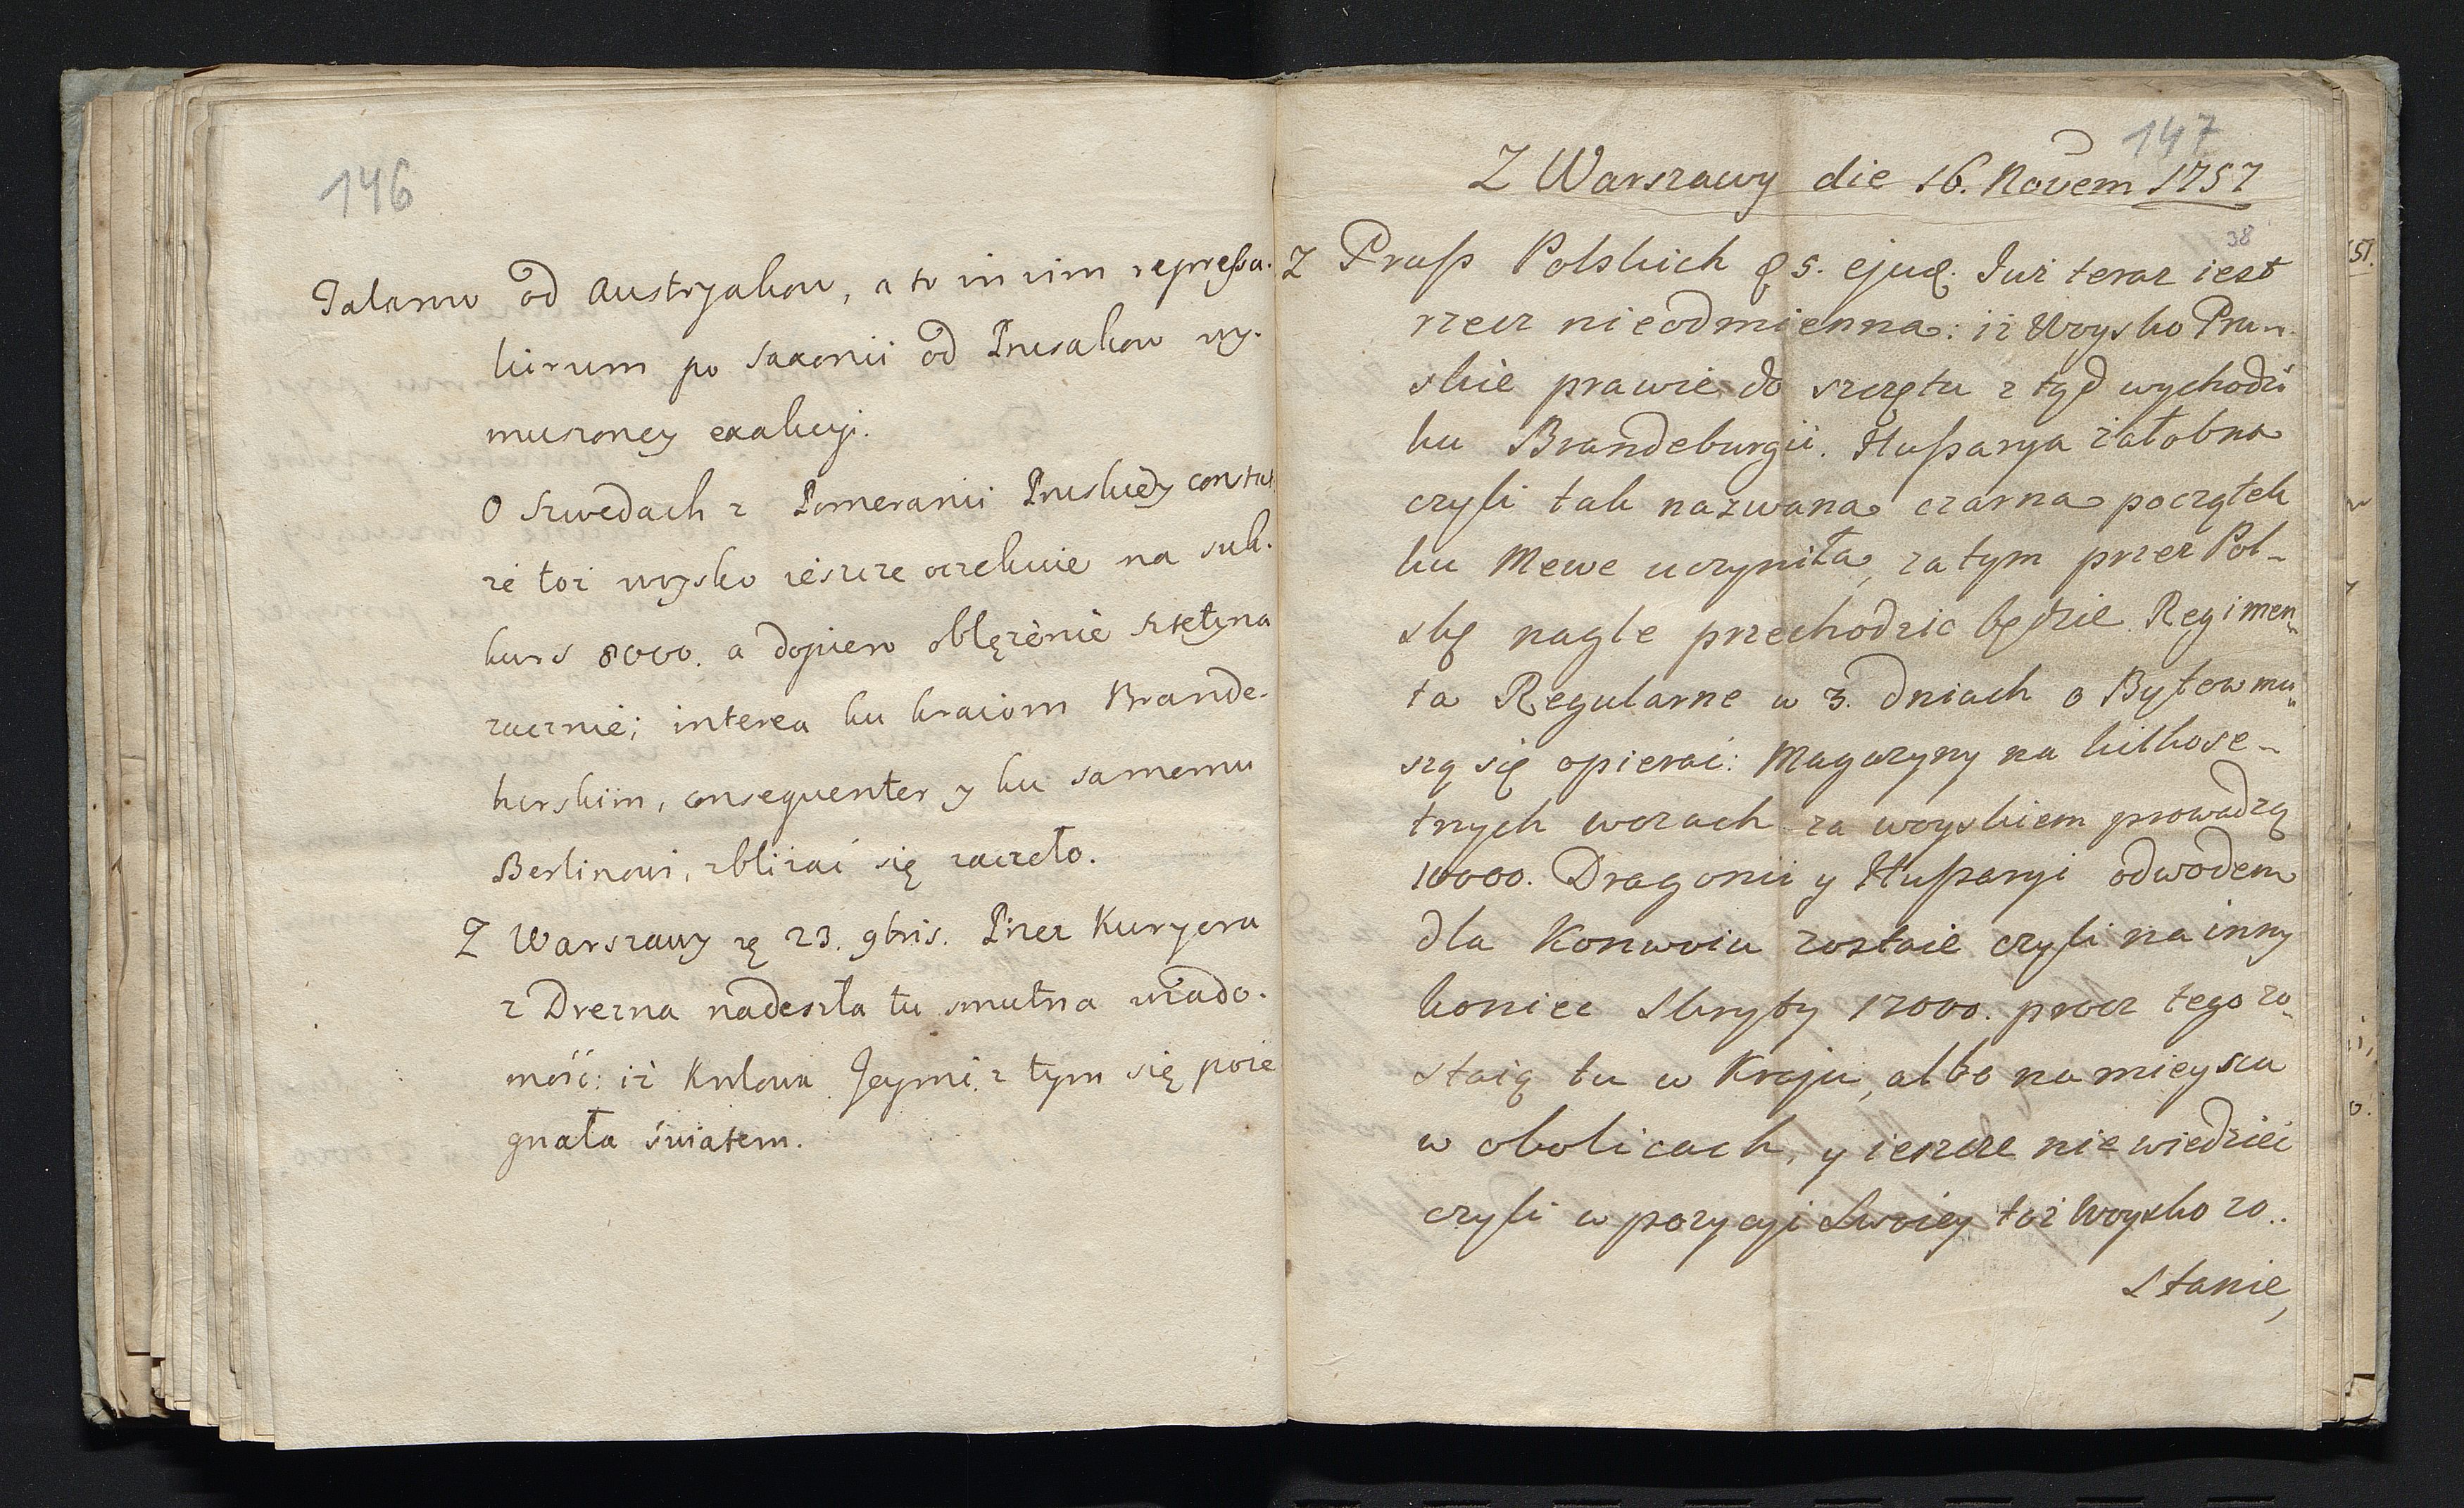 146
Talarow od Austryakow, a to in vim repressa-
liarum po Saxonii od Prusakow wy-
muszoney exakcyi.
O Szwedach z Pomeranii Pruskiey constat
że toż woysko ieszcze oczekuie na suk-
kurs 8000. a dopiero oblężenie Sztetyna
zacznie; interea ku kraiom Brande-
burskim, consequenter y ku samemu
Berlinowi, zbliżać się zaczeło.
Z Warszawy 23. 9bris. Przez Kuryera
z Drezna nadeszła tu smutna wiado-
mość: iż Krolowa Jeymć z tym się poże
gnała światem.
147
Z Warszawy die 16. Novem 1757
38
Z Pruss Polskich 5. ejusd. Już teraz iest
rzecz nieodmienna: iż Woysko Pru-
skie prawie do szczętu z tąd wychodzi
ku Brandeburgii. Hussarya żałobna
czyli tak nazwana czarna początek
ku Mewe uczyniła, za tym przez Pol-
skę nagle przechodzic będzie. Regimen-
ta Regularne w 3. dniach o Bytow mu-
szą się opierać: Magazyny na kilkose-
tnych wozach za woyskiem prowadzą
10000. Dragonii y Hussaryi odwodem
dla Konwoiu zostaie czyli na inny
koniec Skryty 12000. procz tego zo-
staią tu w Kraju, albo na mieyscu
w okolicach, y ieszcze nie wiedzieć
czyli w pozycyi Swoiey toż Woysko zo..
stanie,